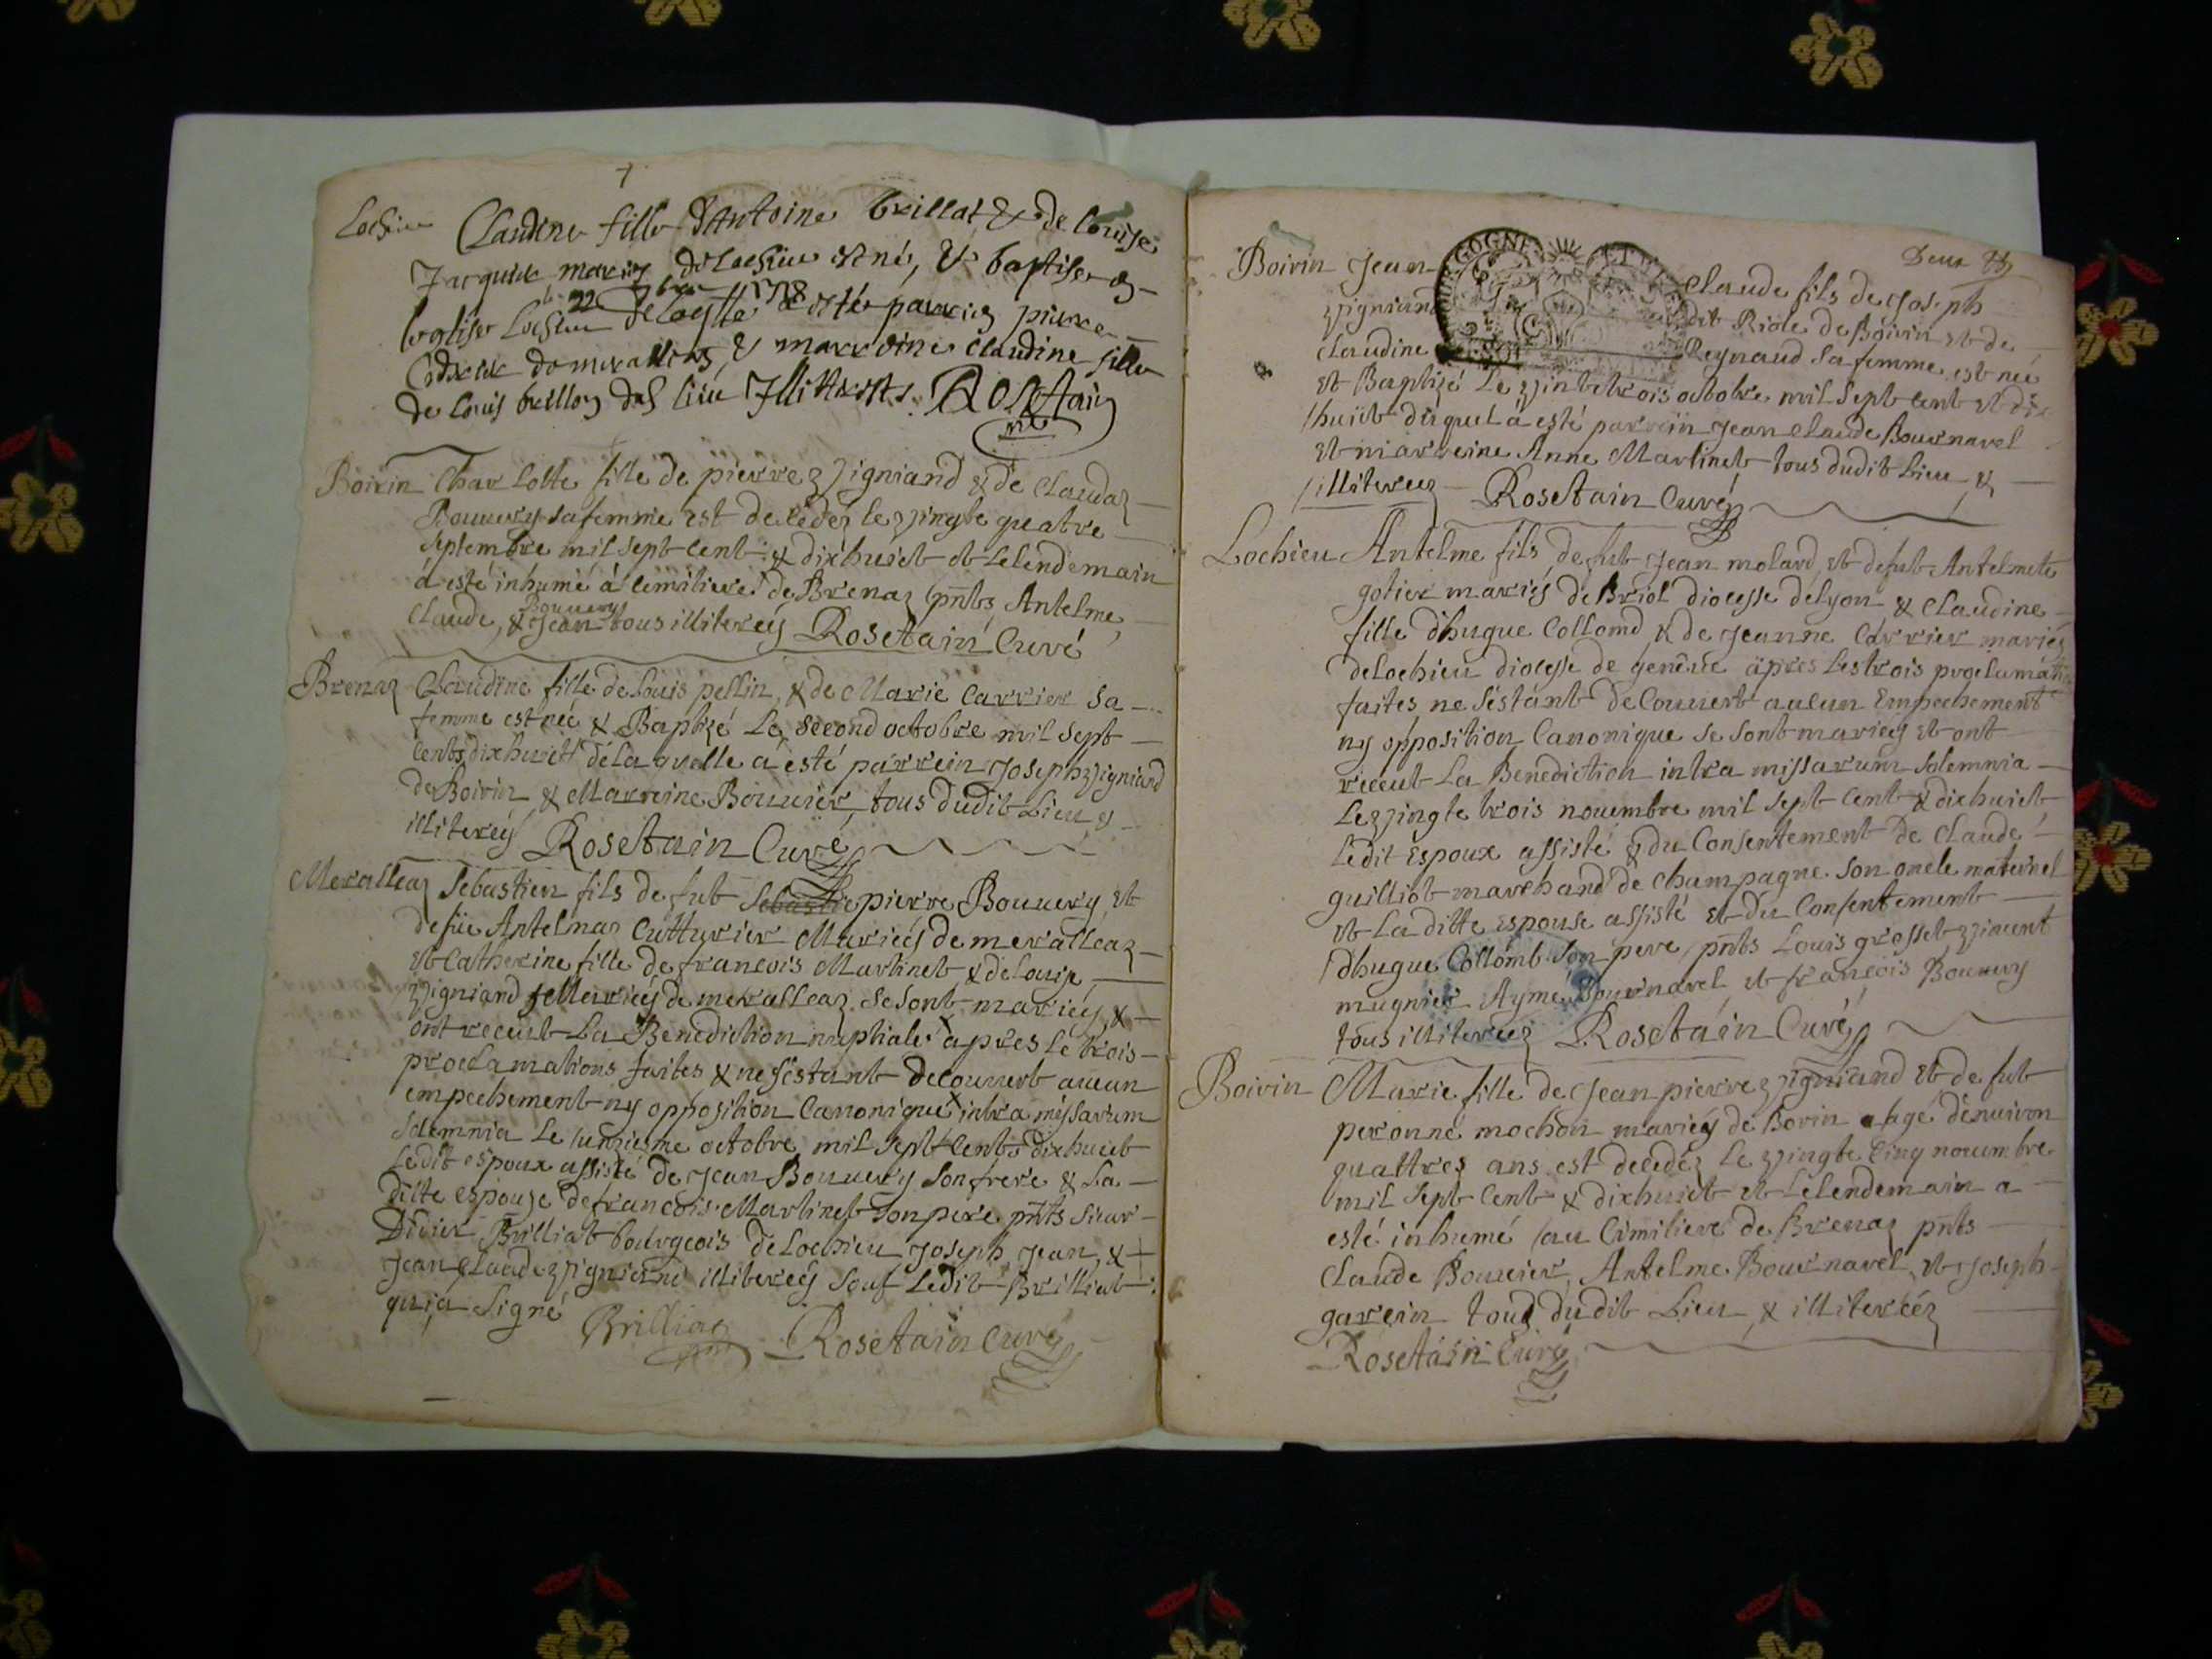 Lochieu Claudine fille d'Antoine brillat & de louise
Jacquier mariez de Lochieu est né, & baptisé en
le 22 7bre 1718
leglise Lochieu de la qlle a esté parrin pierre
de meralleaz, & marroine Claudine fille
de louis brillon dud lieu Illittrets. Rosettain
Boirin Charlotte fille de pierre zjigniand & de Claudaz
Bouuery sa femme est decedéz le zjingte quatre
Septembre mil sept cent & dixhuict et lelendemain
à esté inhumé à cemitiere de Brenaz pnts Antelme,
Bouuery
Claude, & Jean tous illiterés Rosettain Curé
Brenaz Claudine fille de Louis pellin, & de Marie Carrier sa
femme est née & Baptizé Le second octobre mil sept
cents dixhuict de la quelle a esté parrein Joseph zjigniand
de Boirin & Marreine Bouuier, tous dudit Lieu &
illiterés Rosettain Curé
Meralleaz Sebastien fils de fut Sebastie pierre Bouuery et
defüe Antelmaz Cutturier Mariés de meralleaz
et Catherine fille de francois Martinet & de Louise
zjigniand Mariés de meralleaz se sont mariés, &
ont receut La Benediction nuptiale apres le trois
proclamations faites & ne sestant decouuert aucun
empechement ny opposition Canonique intra missarum
Solemnia Le unziesme octobre mil sept cents dixhuict
Ledit espoux assisté de Jean Bouuery son frere & La
ditte espouze de francois Martinet son pere pnts Sieur
Didier Brilliat bourgeois de Lochieu Joseph Jean, &
Jean Claude zjigniand illiterés souf Ledit Brilliat
qui a signé
Brilliat Rosettain Curé
Deux
Boirin Jean Claude fils de Joseph
zjigniand dit Riole de Boirin et de
Claudine Reynaud sa femme est neé
et Baptizé Le zjint trois octobre mil sept cent et dix
huict duquel a esté parrein Jean Claude Bournavel
et marreine Anne Martinet tous dudit Lieu &
illiterez Rosettain Curéz
Lochieu Antelme fils de fut Jean molard, et defut Antelmete
gotier mariés de Briol diocesse de Lyon & Claudine
fille d'hugue Collomd & de Jeanne Carrier mariés
de Lochieu diocesse de genéue apres les trois proclamati
faites ne s'estant decouuert aucun Empechement
ny opposition Canonique se sont mariés et ont
receut La Benediction intra missarum solemnia
Le zjingte trois nouembre mil sept cent & dixhuict
Ledit Espoux assisté & du Consentement de Claude
guilliot marchand de champagne son oncle maternel
et La ditte espouse assisté et du Consentement
d'hugue Collomb son pere, pnts Louis grosset zjincent
mugnier Aymé Bournavel et francois Bouuery
tous illiterez Rosettain Curé
Boirin Marie fille de Jean pierre zjigniand et de fut
peronne mochon mariés de Borin agé denuiron
quattres ans est decedéz Le zjingte Cinq nouembre
mil sept Cent & dixhuict et Lelendemain a
esté inhumé au Cimitiere de Brenaz pnts
Claude Bouuier, Antelme Bournavel, et Joseph
garein tous dudit Lieu & illiteréez
Rosettain Curé